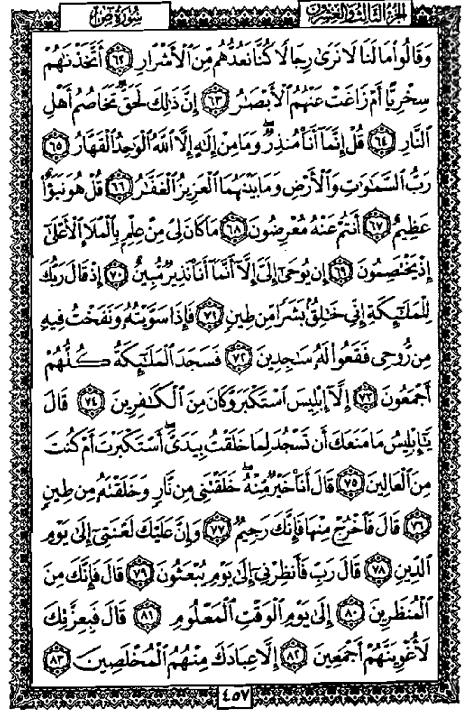 سُورَةُ صٓ
الجُزْءُ الثَّالِثُ وَالعِشْرُونَ
وَقَالُواْ مَا لَنَا لَا نَرَىٰ رِجَالًا كُنَّا نَعُدُّهُم مِّنَ ٱلْأَشْرَارِ ٦٢ أَتَّخَذْنَٰهُمْ
سِخْرِيًّا أَمْ زَاغَتْ عَنْهُمُ ٱلْأَبْصَٰرُ ٦٣ إِنَّ ذَٰلِكَ لَحَقٌّ تَخَاصُمُ أَهْلِ
ٱلنَّارِ ٦٤ قُلْ إِنَّمَآ أَنَا۠ مُنذِرٌ ۖ وَمَا مِنْ إِلَٰهٍ إِلَّا ٱللَّهُ ٱلْوَٰحِدُ ٱلْقَهَّارُ ٦٥
رَبُّ ٱلسَّمَٰوَٰتِ وَٱلْأَرْضِ وَمَا بَيْنَهُمَا ٱلْعَزِيزُ ٱلْغَفَّٰرُ ٦٦ قُلْ هُوَ نَبَؤٌاْ
عَظِيمٌ ٦٧ أَنتُمْ عَنْهُ مُعْرِضُونَ ٦٨ مَا كَانَ لِىَ مِنْ عِلْمٍۭ بِٱلْمَلَإِ ٱلْأَعْلَىٰٓ
إِذْ يَخْتَصِمُونَ ٦٩ إِن يُوحَىٰٓ إِلَىَّ إِلَّآ أَنَّمَآ أَنَا۠ نَذِيرٌ مُّبِينٌ ٧٠ إِذْ قَالَ رَبُّكَ
لِلْمَلَٰٓئِكَةِ إِنِّى خَٰلِقٌۢ بَشَرًا مِّن طِينٍ ٧١ فَإِذَا سَوَّيْتُهُۥ وَنَفَخْتُ فِيهِ
مِن رُّوحِى فَقَعُواْ لَهُۥ سَٰجِدِينَ ٧٢ فَسَجَدَ ٱلْمَلَٰٓئِكَةُ كُلُّهُمْ
أَجْمَعُونَ ٧٣ إِلَّآ إِبْلِيسَ ٱسْتَكْبَرَ وَكَانَ مِنَ ٱلْكَٰفِرِينَ ٧٤ قَالَ
يَٰٓإِبْلِيسُ مَا مَنَعَكَ أَن تَسْجُدَ لِمَا خَلَقْتُ بِيَدَىَّ ۖ أَسْتَكْبَرْتَ أَمْ كُنتَ
مِنَ ٱلْعَالِينَ ٧٥ قَالَ أَنَا۠ خَيْرٌ مِّنْهُ ۖ خَلَقْتَنِى مِن نَّارٍ وَخَلَقْتَهُۥ مِن طِينٍ
٧٦ قَالَ فَٱخْرُجْ مِنْهَا فَإِنَّكَ رَجِيمٌ ٧٧ وَإِنَّ عَلَيْكَ لَعْنَتِىٓ إِلَىٰ يَوْمِ
ٱلدِّينِ ٧٨ قَالَ رَبِّ فَأَنظِرْنِىٓ إِلَىٰ يَوْمِ يُبْعَثُونَ ٧٩ قَالَ فَإِنَّكَ مِنَ
ٱلْمُنظَرِينَ ٨٠ إِلَىٰ يَوْمِ ٱلْوَقْتِ ٱلْمَعْلُومِ ٨١ قَالَ فَبِعِزَّتِكَ
لَأُغْوِيَنَّهُمْ أَجْمَعِينَ ٨٢ إِلَّا عِبَادَكَ مِنْهُمُ ٱلْمُخْلَصِينَ ٨٣
٤٥٧